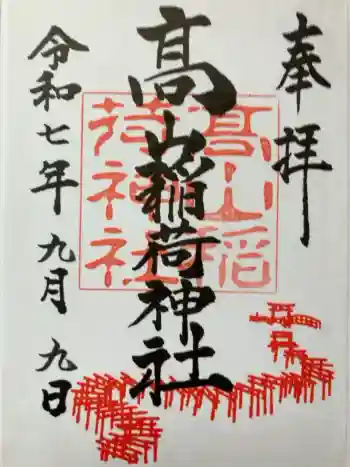 奉拝
髙山稲荷神社
髙山稲
荷神社
令和七年 九月 九日